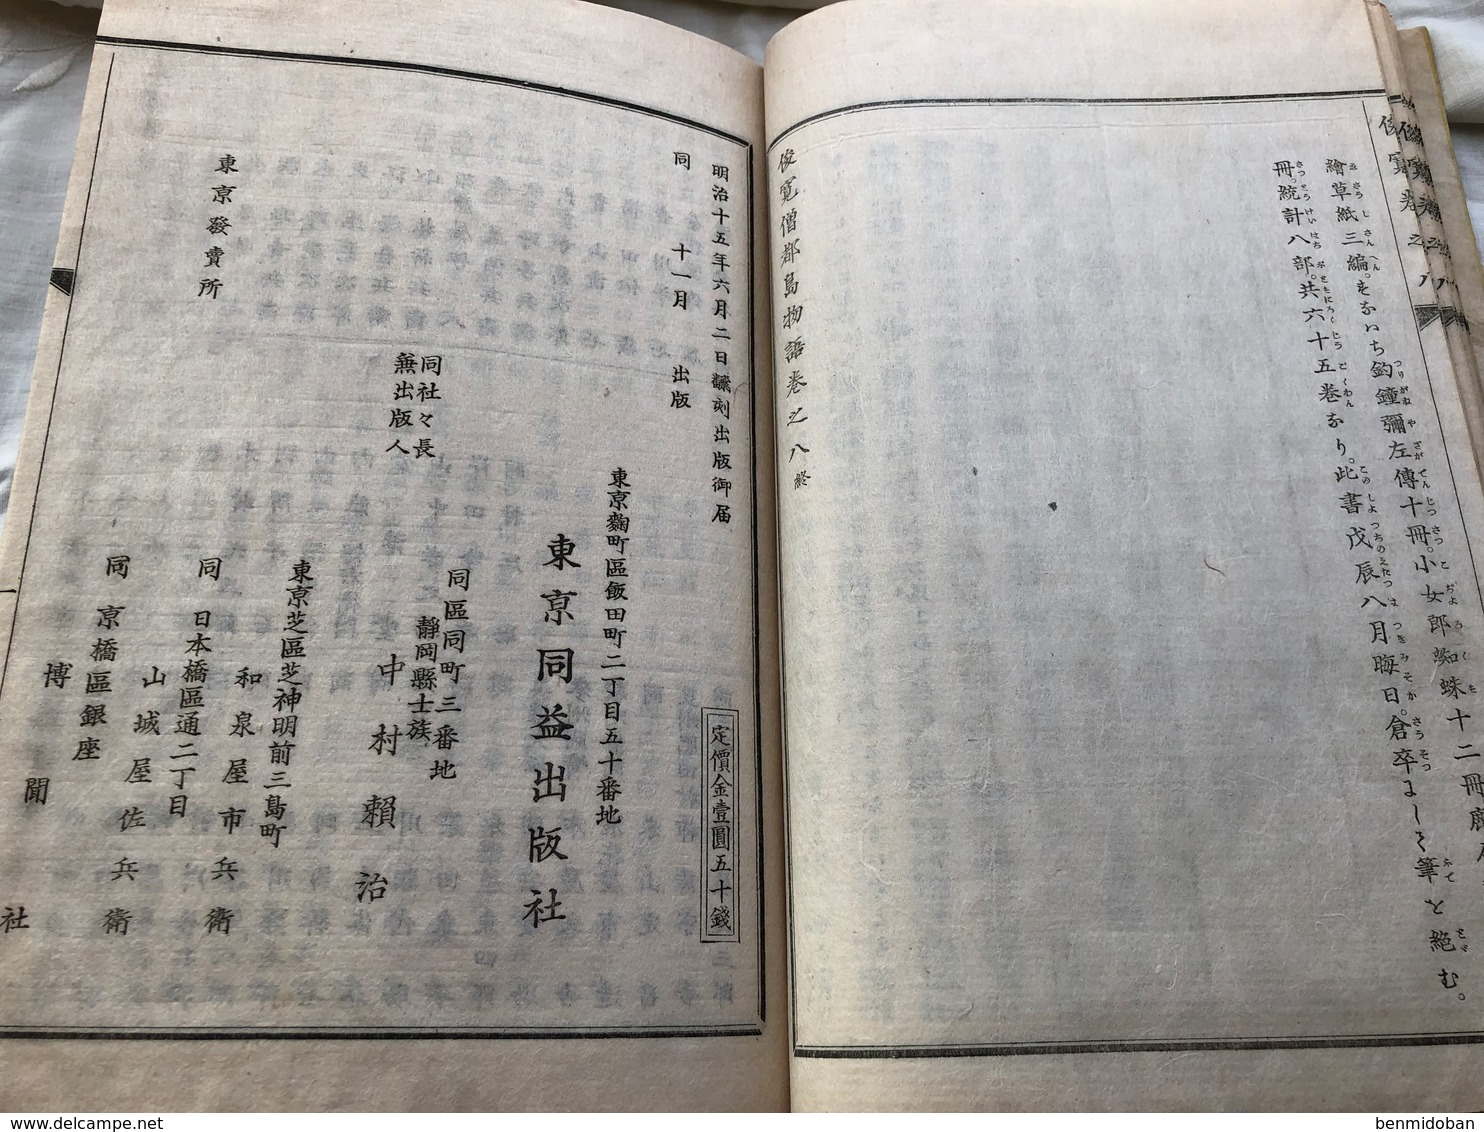 繪草紙三編。をなはち釣鐘彌左傳十冊。小女郎蜘蛛十二冊
冊。統計八部。共六十五巻なり。此書戊辰八月晦日。倉卒にして筆を絕む。
俊寬僧都島物語巻之八終
明治十五年六月二日飜刻出版御届
同 十一月 出版
定價金壹圓五十錢
東京麴町區飯田町二丁目五十番地
東京同益出版社
同區同町三番地
靜岡縣士族
同社々長
兼出版人
中村賴治
東京發賣所
東京芝區芝神明前三島町
和泉屋市兵衛
同 日本橋區通二丁目
山城屋佐兵衛
同 京橋區銀座
博聞社
delcampe.net
benmidoban